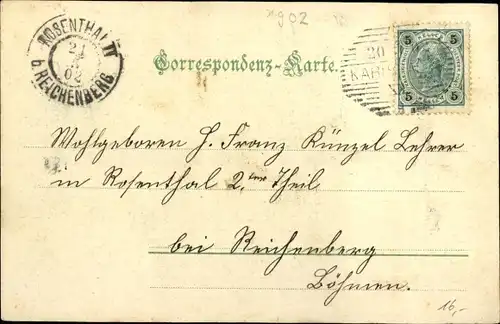 902
ROSENTHAL II
21
02
b. REICHENBERG
Correspondenz-Karte.
20
KAR
5 5
5 5
Wohlgeboren H. Franz Künzel Lehrer
in Rosenthal 2.ter Theil
bei Reichenberg
Böhmen.
16,-